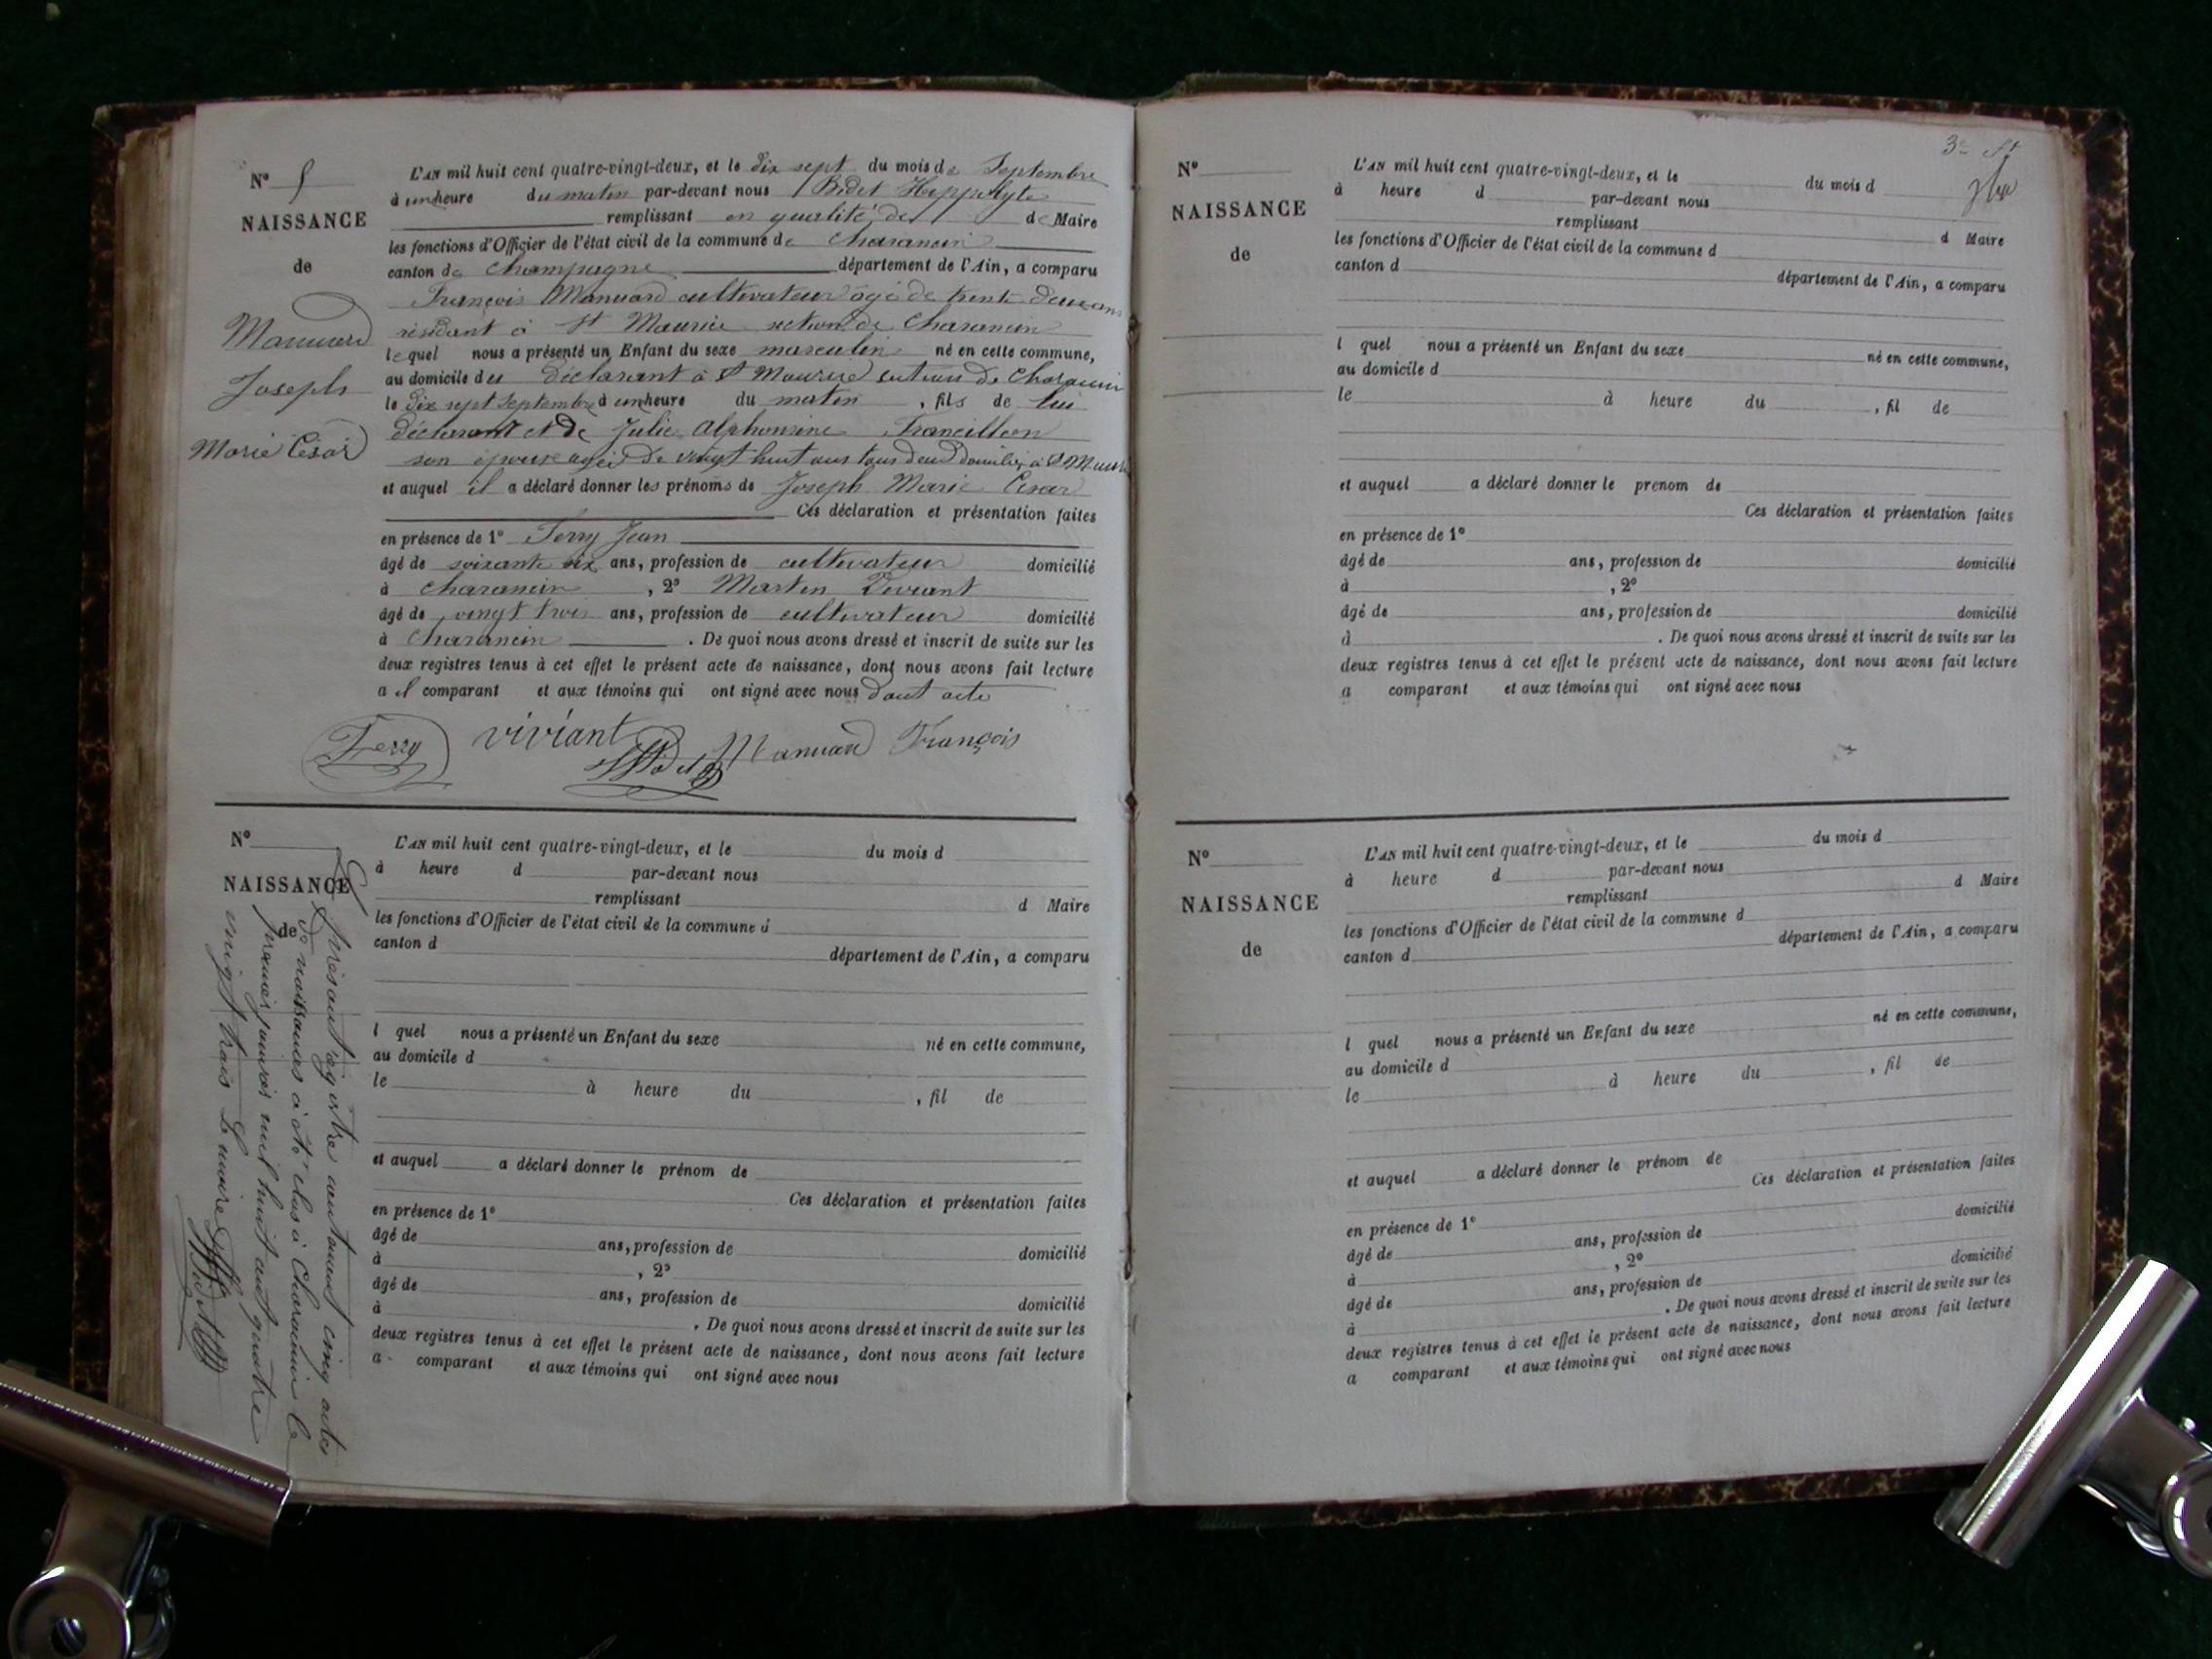 N° 5
NAISSANCE
de
Manuard
Joseph
Marie César
L'AN mil huit cent quatre-vingt-deux, et le dix sept du mois de Septembre
à une heure du matin par-devant nous Bidet Hippolyte
remplissant en qualité de de Maire
les fonctions d'Officier de l'état civil de la commune de Charancin
canton de Champagne département de l'Ain, a comparu
François Manuard cultivateur âgé de trente deux ans
résidant à St Maurice section de Charancin
lequel nous a présenté un Enfant du sexe masculin né en cette commune,
au domicile du déclarant à St Maurice section de Charancin
le dix sept Septembre à une heure du matin , fils de lui
déclarant et de Julie Alphonsine Francillon
son épouse agée de vingt huit ans tous deux domiciliés à St Maurice
et auquel il a déclaré donner les prénoms de Joseph Marie César
Ces déclaration et présentation faites
en présence de 1° Ferry Jean
âgé de soixante six ans, profession de cultivateur domicilié
à Charancin , 2° Martin Viviant
âgé de vingt trois ans, profession de cultivateur domicilié
à Charancin . De quoi nous avons dressé et inscrit de suite sur les
deux registres tenus à cet effet le présent acte de naissance, dont nous avons fait lecture
a il comparant et aux témoins qui ont signé avec nous dont acte
Ferry viviant Bidet Manuard François
N°
NAISSANCE
de
L'AN mil huit cent quatre-vingt-deux, et le du mois d
à heure d par-devant nous
remplissant d Maire
les fonctions d'Officier de l'état civil de la commune d
canton d département de l'Ain, a comparu
l quel nous a présenté un Enfant du sexe né en cette commune,
au domicile d
le à heure du , fil de
et auquel a déclaré donner le prénom de
Ces déclaration et présentation faites
en présence de 1°
âgé de ans, profession de domicilié
à , 2°
âgé de ans, profession de domicilié
à . De quoi nous avons dressé et inscrit de suite sur les
deux registres tenus à cet effet le présent acte de naissance, dont nous avons fait lecture
a comparant et aux témoins qui ont signé avec nous
Le présent registre contenant cinq actes
de naissances a été clos à Charancin le
premier janvier mil huit cent quatre
vingt trois Le maire Bidet
3e
N°
NAISSANCE
de
L'AN mil huit cent quatre-vingt-deux, et le du mois d
à heure d par-devant nous
remplissant d Maire
les fonctions d'Officier de l'état civil de la commune d
canton d département de l'Ain, a comparu
l quel nous a présenté un Enfant du sexe né en cette commune,
au domicile d
le à heure du , fil de
et auquel a déclaré donner le prenom de
Ces déclaration et présentation faites
en présence de 1°
âgé de ans, profession de domicilié
à , 2°
âgé de ans, profession de domicilié
à . De quoi nous avons dressé et inscrit de suite sur les
deux registres tenus à cet effet le présent acte de naissance, dont nous avons fait lecture
a comparant et aux témoins qui ont signé avec nous
N°
NAISSANCE
de
L'AN mil huit cent quatre-vingt-deux, et le du mois d
à heure d par-devant nous
remplissant d Maire
les fonctions d'Officier de l'état civil de la commune d
canton d département de l'Ain, a comparu
l quel nous a présenté un Enfant du sexe né en cette commune,
au domicile d
le à heure du , fil de
et auquel a déclaré donner le prénom de
Ces déclaration et présentation faites
en présence de 1°
âgé de ans, profession de domicilié
à , 2°
âgé de ans, profession de domicilié
à . De quoi nous avons dressé et inscrit de suite sur les
deux registres tenus à cet effet le présent acte de naissance, dont nous avons fait lecture
a comparant et aux témoins qui ont signé avec nous